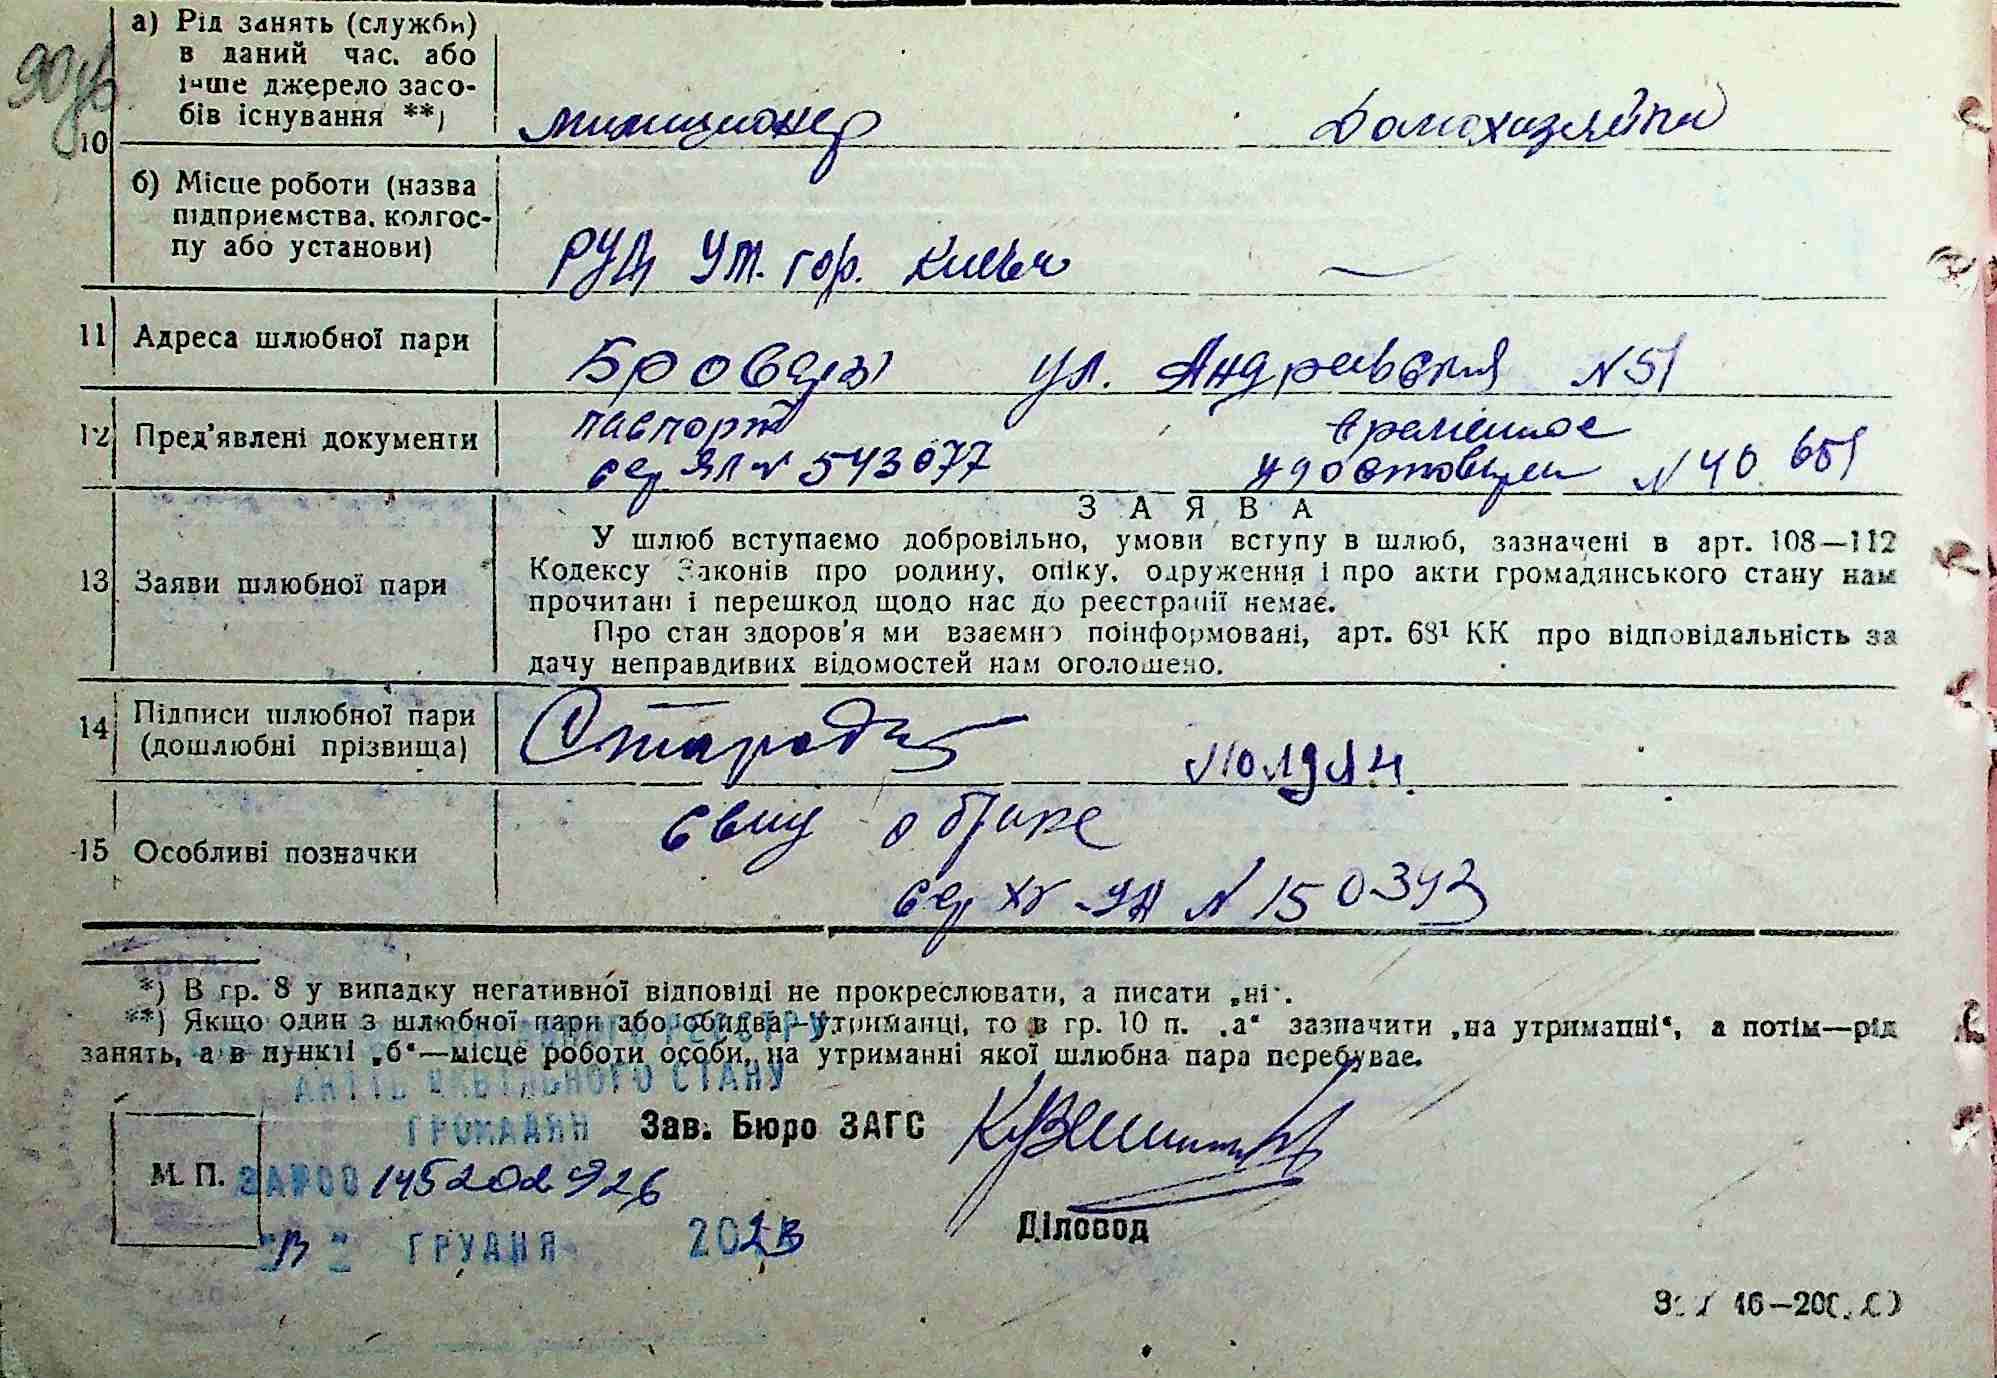 а) Рід занять (служби)
в даний час. або
інше джерело засо-
бів існування **)
10
милиционер
Домохозяйка
б) Місце роботи (назва
підприємства, колгос-
пу або установи)
гор. Киева
—
11 Адреса шлюбної пари
Бровары ул. Андреевская N 51
12 Пред'явлені документи
паспорт
временное
N 543077
N 40 651
З А Я В А
У шлюб вступаємо добровільно, умови вступу в шлюб, зазначені в арт. 108—112
13 Заяви шлюбної пари
Кодексу Законів про родину, опіку, одруження і про акти громадянського стану нам
прочитані і перешкод щодо нас до реєстрації немає.
Про стан здоров'я ми взаємно поінформовані, арт. 68¹ КК про відповідальність за
дачу неправдивих відомостей нам оголошено.
14 Підписи шлюбної пари
(дошлюбні прізвища)
15 Особливі позначки
о браке
N 150343
*) В гр. 8 у випадку негативної відповіді не прокреслювати, а писати „ні“.
**) Якщо один з шлюбної пари або обидва—утриманці, то в гр. 10 п. „а“ зазначити „на утриманні“, а потім—рід
занять, а в пункті „б“—місце роботи особи, на утриманні якої шлюбна пара перебуває.
АКТІВ ЦИВІЛЬНОГО СТАНУ
ГРОМАДЯН
Зав. Бюро ЗАГС
М. П.
145202926
ГРУДНЯ 2023
Діловод